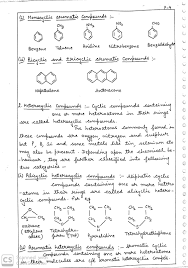 P-4
(i) Monocyclic aromatic compounds :-
CH3
NH2
NO2
CHO
Benzene Toluene Aniline Nitrobenzene Benzaldehyde
(ii) Bicyclic and tricyclic aromatic compounds :-
Naphthalene Anthracene
Heterocyclic Compounds :- Cyclic compounds containing
one or more heteroatoms in their rings
are called heterocyclic compounds.
The heteroatoms commonly found in
these compounds are oxygen, nitrogen and sulphur
but P, B, Si and some metals like tin, selenium etc
may also be present. Depending upon the chemical be
haviour, they are further classified into following
two categories -
(i) Alicyclic heterocyclic compounds :- Aliphatic cyclic
compounds containing one or more hetero
-atoms in their rings are called alicyclic hetero
cyclic compounds.
(ii) Aromatic heterocyclic compounds :- aromatic cyclic
compounds containing one or more heteroatoms
in their molecules are aromatic
CS